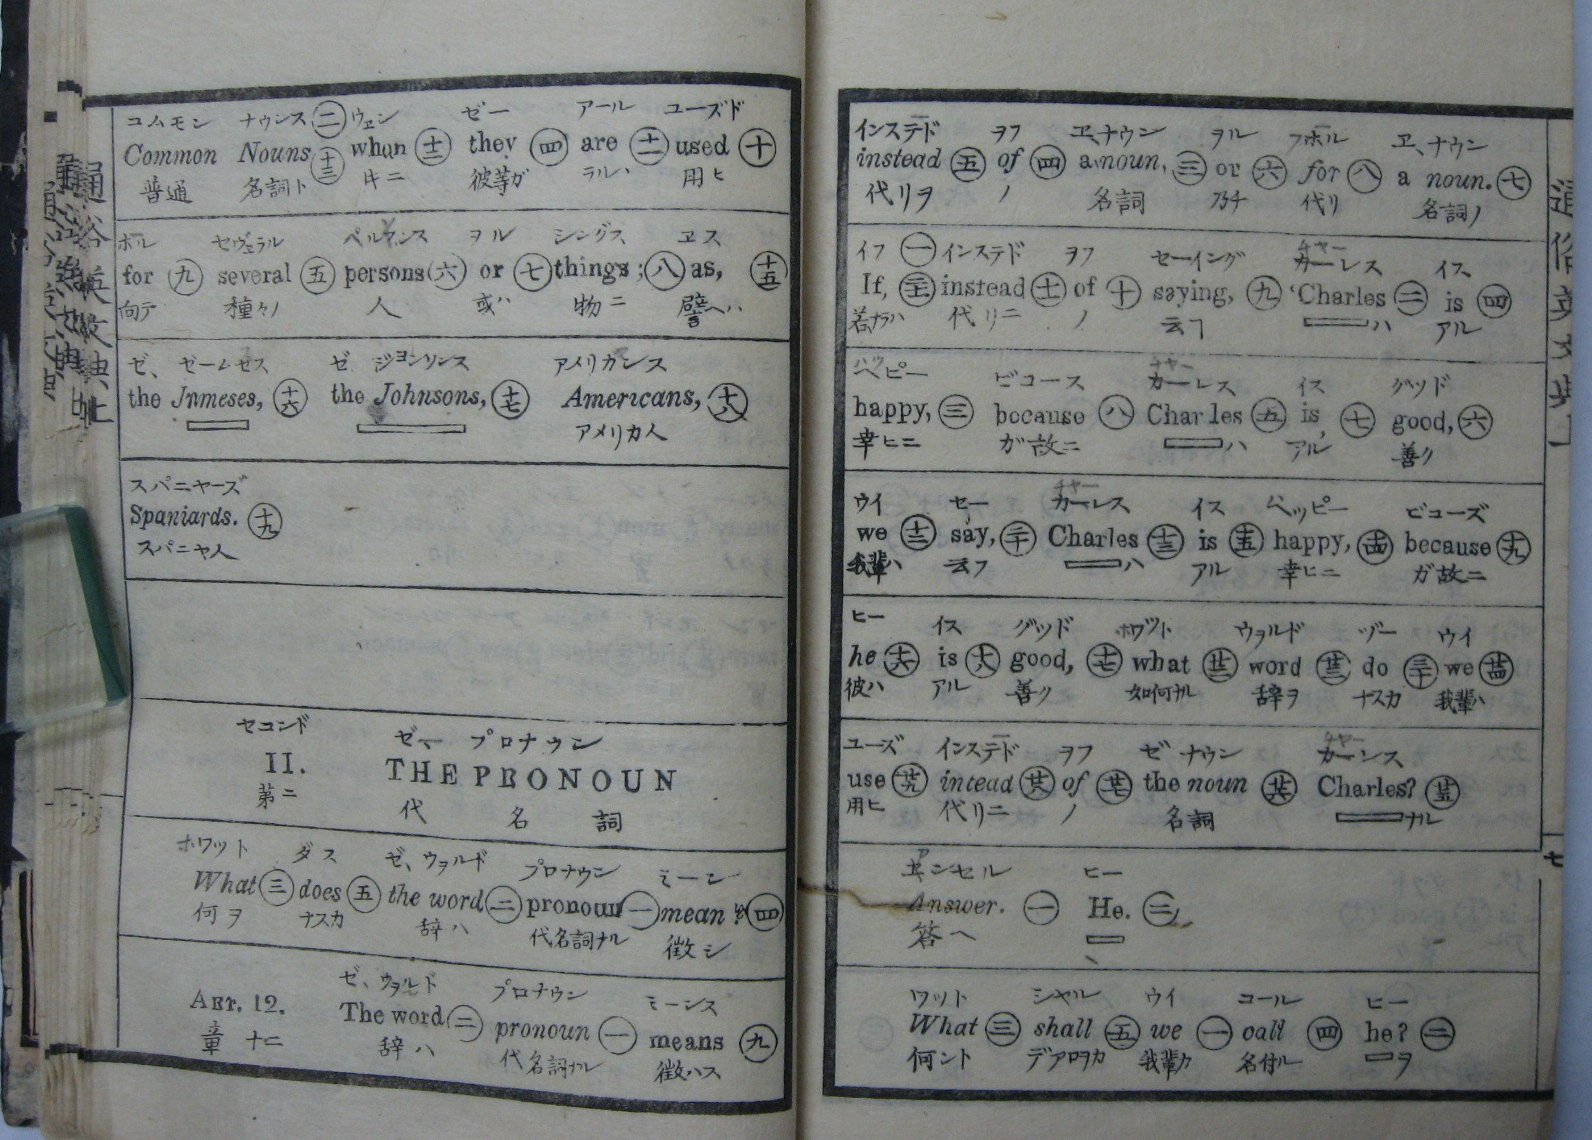 コムモン ナウンス ウェン ゼー アール ユーズド
Common Nouns 二 十三 whun 十二 they 四 are 十一 used 十
普通 名詞ト キニ 彼等ガ ラルハ 用ヒ
ホル セヴェラル ペルソンス ヲル シングス ヱス
for 九 several 五 persons 六 or 七 things; 八 as, 十五
向テ 種々ノ 人 或ハ 物ニ 譬ヘハ
ゼ、 ゼームセス ゼ ジヨンソンス アメリカンス
the Jameses, 十六 the Johnsons, 十七 Americans, 十八
アメリカ人
スパニヤーズ
Spaniards. 十九
スパニヤ人
セコンド ゼー プロナウン
II. THE PRONOUN
第二 代名詞
ホワット ダス ゼ、ウヲルド プロナウン ミーン
What 三 does 五 the word 二 pronoun 一 mean 四
何ヲ ナスカ 辞ハ 代名詞ナル 徴シ
ゼ、ウヲルド プロナウン ミーンス
ART. 12. The word 二 pronoun 一 means 九
章 十二 辞ハ 代名詞ナル 徴ハス
インステード ヲフ ヱ、ナウン ヲル フホル ヱ、ナウン
instead 五 of 四 a noun, 三 or 六 for 八 a noun. 七
代リヲ ノ 名詞 乃チ 代リ 名詞ノ
イフ インステド ヲフ セーイング チヤーレス イス
If, 一 instead 十一 of 十 saying, 九 'Charles 二 is 四
若ナラハ 代リニ ノ 云フ ハ アル
ハッピー ビコース チヤーレス イス グツド
happy, 三 because 八 Charles 五 is, 七 good, 六
幸ヒニ ガ故ニ ハ アル 善ク
ウイ セー チヤーレス イス ヘッピー ビコーズ
we 十二 say, 二十 Charles 十三 is 十五 happy, 十四 because 十九
我輩ハ 云フ ハ アル 幸ヒニ ガ故ニ
ヒー イス グツド ホワツト ウヲルド ヅー ウイ
he 十六 is 十八 good, 十七 what 廿二 word 廿三 do 三十 we 廿四
彼ハ アル 善ク 如何ナル 辞ヲ ナスカ 我輩ハ
ユーズ インステード ヲフ ゼ ナウン チヤーレス
use 廿九 intead 廿八 of 廿七 the noun 廿六 Charles? 廿五
用ヒ 代リニ ノ 名詞 ナル
アンセル ヒー
Answer. 一 He. 二
答ヘ
ワット シャル ウイ コール ヒー
What 三 shall 五 we 一 call 四 he? 二
何ント デアロヲカ 我輩カ 名付ル ヲ
七